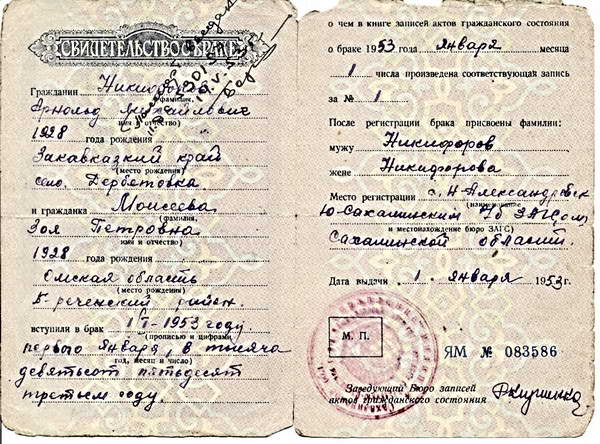 СВИДЕТЕЛЬСТВО О БРАКЕ
Гражданин Никифоров
(фамилия,
Арнольд Михайлович
имя и отчество)
1928 года рождения
Закавказкий край
(место рождения)
село Дербетовка
и гражданка Моисеева
(фамилия,
Зоя Петровна
имя и отчество)
1928 года рождения
Омская область
(место рождения)
Б реченский район.
вступили в брак 1/I-1953 году
(прописью и цифрами
первого января, в тысяча
год, месяц и число)
девятьсот пятьдесят
третьем году.
о чем в книге записей актов гражданского состояния
о браке 1953 года января месяца
1 числа произведена соответствующая запись
за № 1
После регистрации брака присвоены фамилии:
мужу Никифоров
жене Никифорова
Место регистрации с. Н Александровск
(наименование
Ю-Сахалинским ЗАГСом,
и местонахождение бюро ЗАГС)
Сахалинской области.
Дата выдачи 1 января 1953 г.
М. П.
ЯМ № 083586
Заведующий Бюро записей
актов гражданского состояния